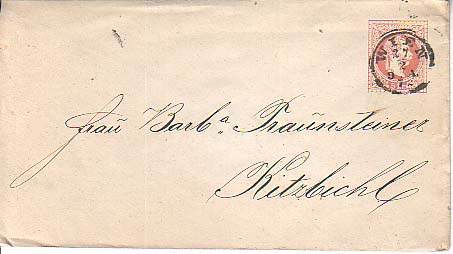 WIEN
27
2
Fraü Barbª Traünsteiner
Kitzbichl